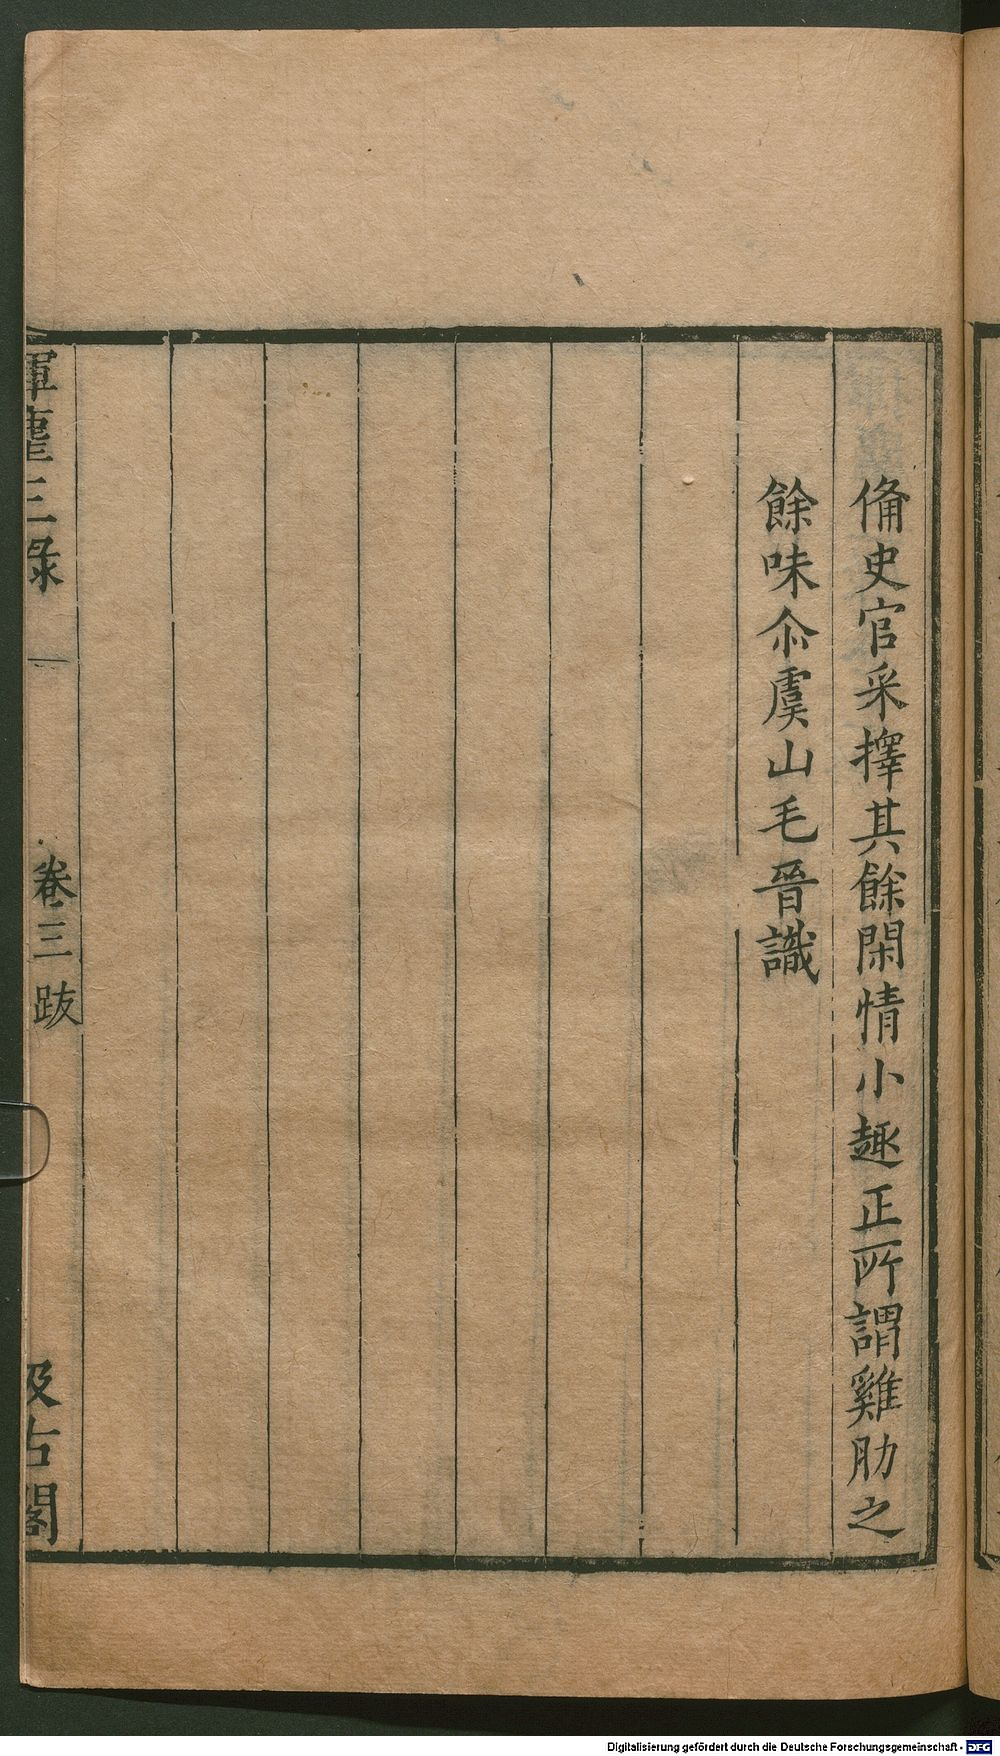 俻史官采擇其餘閑情小趣正所謂雞肋之
餘味尒虞山毛晉識
揮麈三録
卷三跋
汲古閣
Digitalisierung gefördert durch die Deutsche Forschungsgemeinschaft - DFG